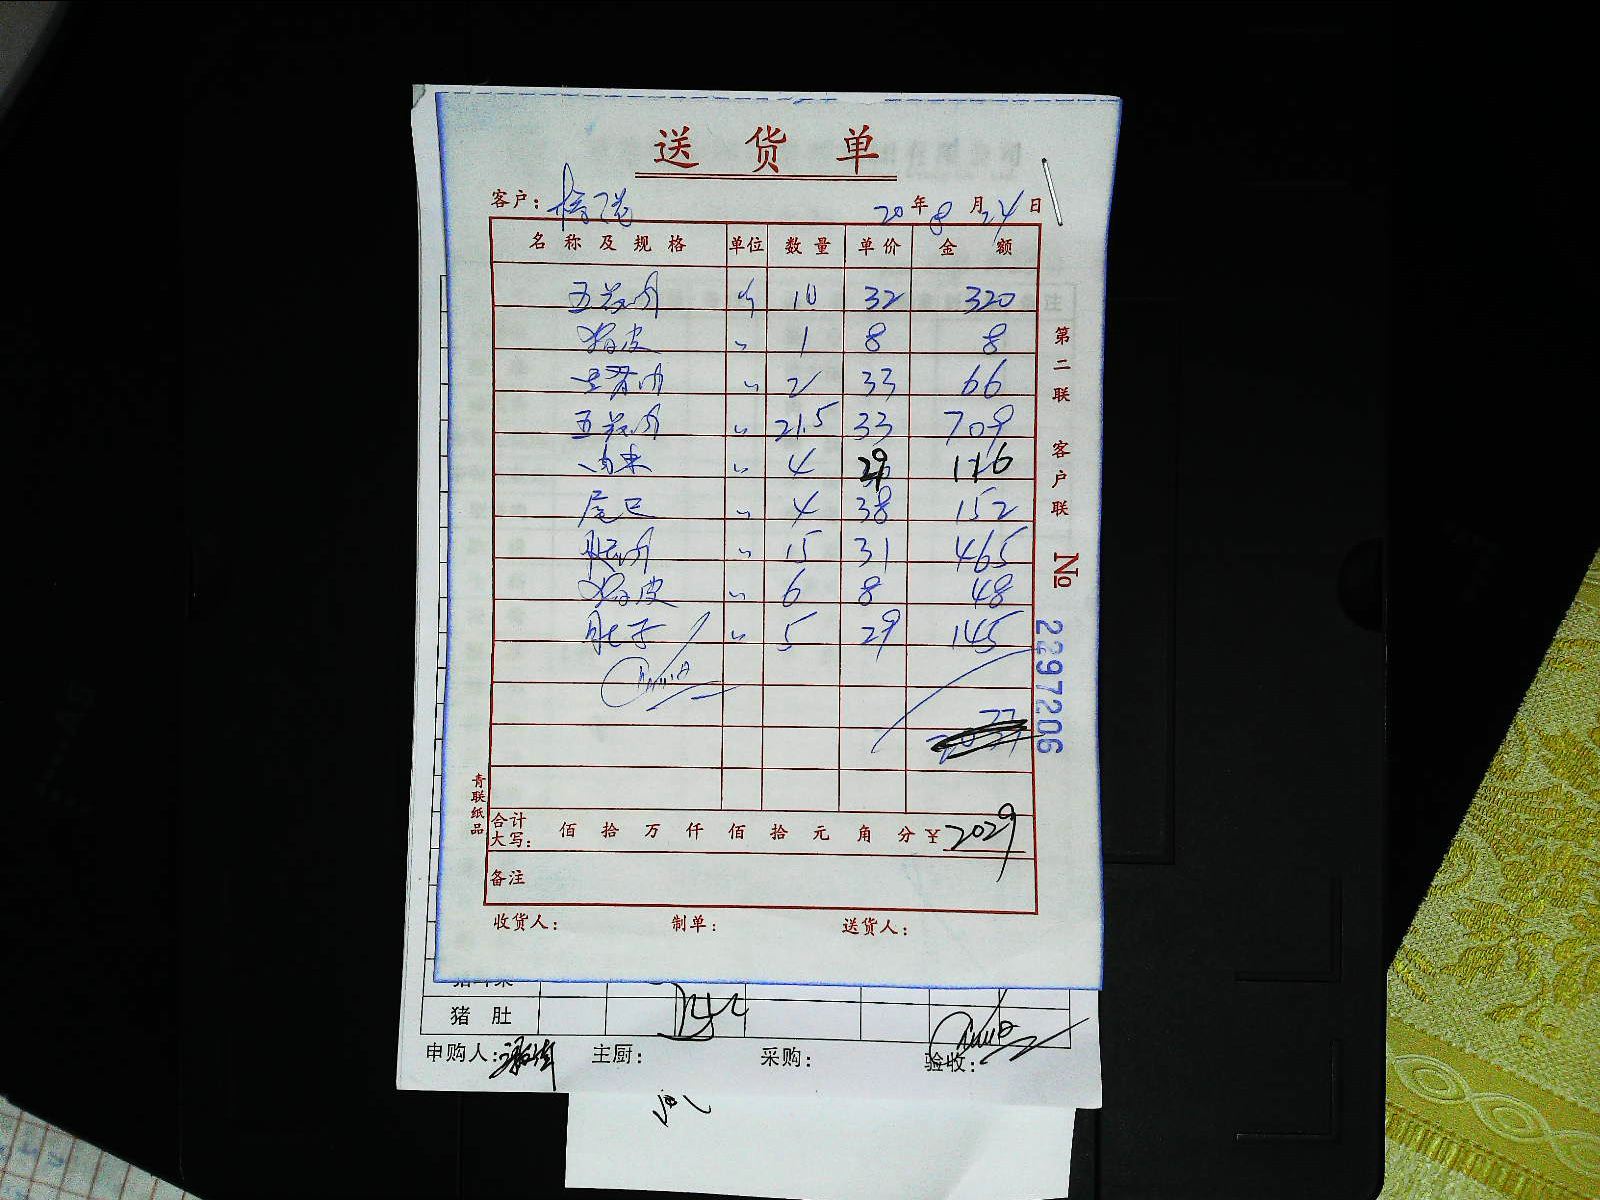 送货单
客户:
20年8月24日
名称及规格 单位 数量 单价 金额
五花肉 斤 10 32 320
猪皮 〃 1 8 8
〃 2 33 66
五花肉 〃 21.5 33 709
肉末 〃 4 29 116
尾巴 〃 4 38 152
腿肉 〃 15 31 465
猪皮 〃 6 8 48
肚子 〃 5 29 145
合计大写: 佰 拾 万 仟 佰 拾 元 角 分 ¥2029
备注
收货人: 制单: 送货人:
第二联 客户联
No 2297206
青联纸品
猪肚
申购人: 主厨: 采购: 验收: